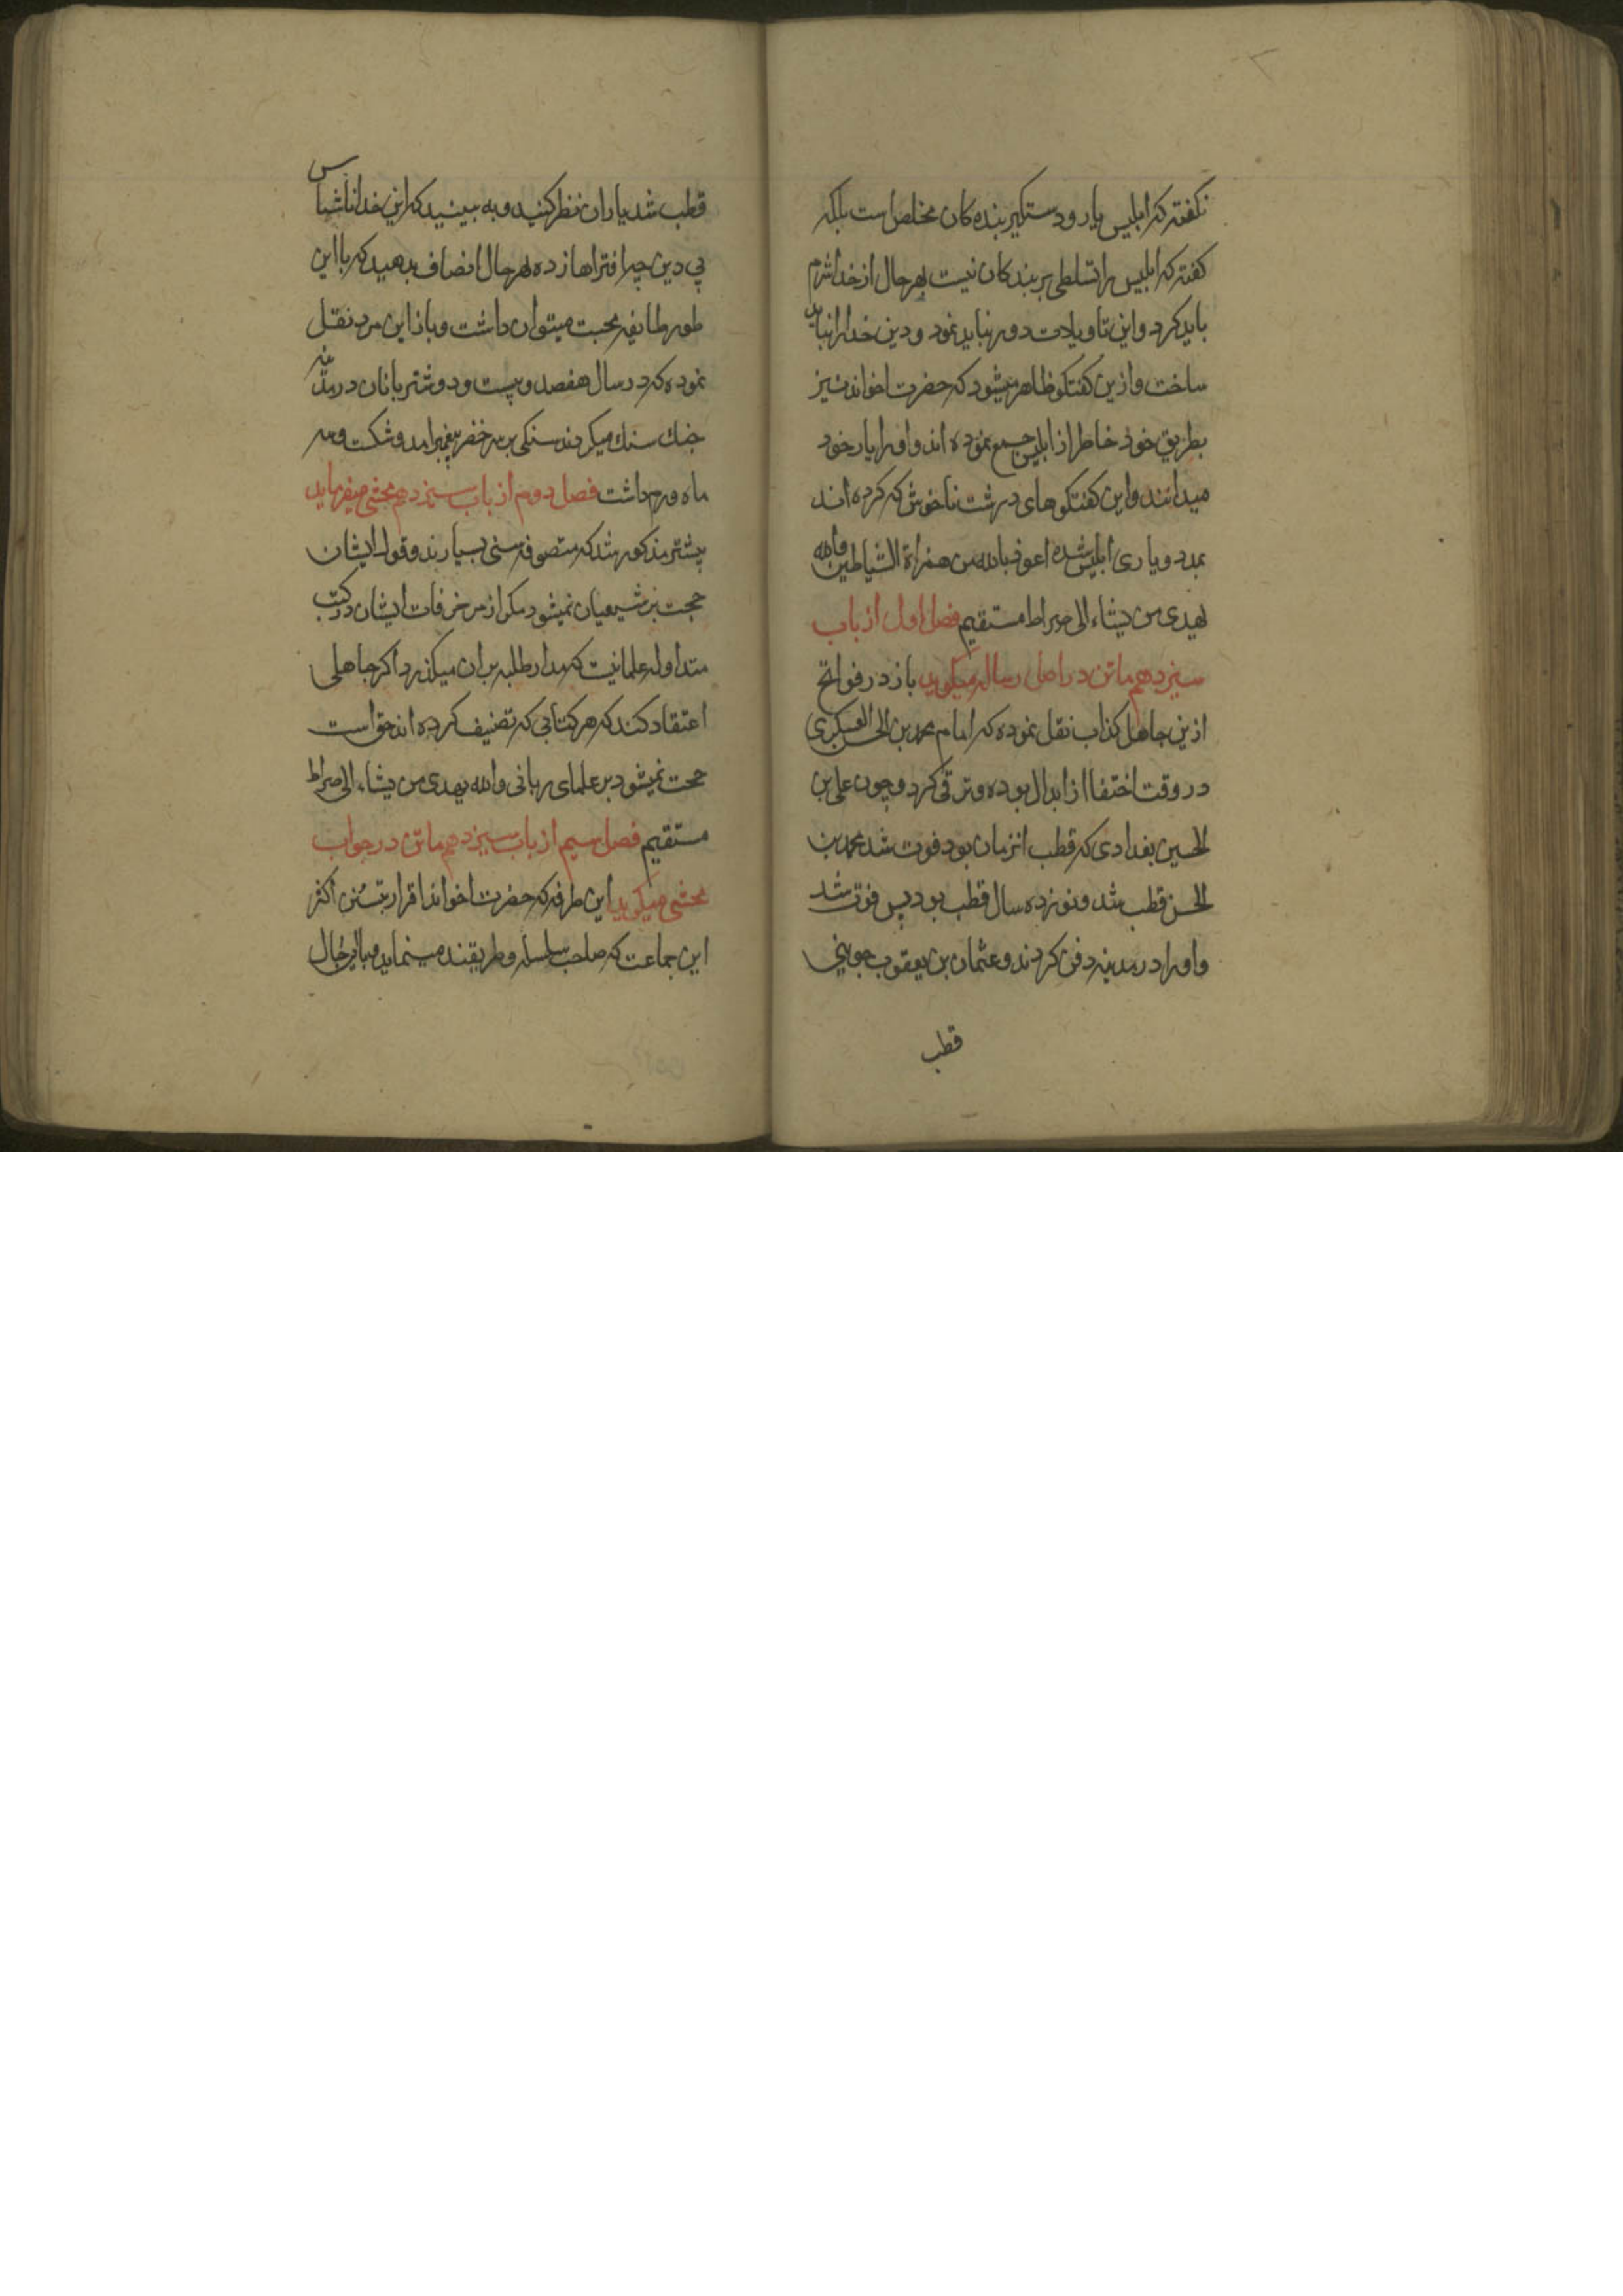 نکفته که ابلیس یار و دستکیر بنده کان مخلص است بلکه
کفته که ابلیس را تسلطی بر بندکان نیست بهر حال از خدا شرم
باید کرد و این تاویلات دور نباید نمود و دین خدا را نباید
ساخت و ازین کفتکو ظاهر میشود که حضرت اخواند نیز
بطریق خود خاطر از ابلیس جمع نموده اند و او را یار خود
میدانند و این کفتکوهای درشت ناخوش که کرده اند
بمدد و یاری ابلیس شده اعوذ بالله من همزاة الشیاطین والله
یهدی من یشاء الی صراط مستقیم فصل اول از باب
سیزدهم ماتن در اصل رساله میکوید باز در فواتح
ازین جاهل کذاب نقل نموده که امام محمد بن الحسن العسکری
در وقت اختفا از ابدال بوده و ترقی کرد و چون علی بن
الحسین بغدادی که قطب انزمان بود فوت شد محمد بن
الحسن قطب شد و نوزده سال قطب بود پس فوت شد
و او را در مدینه دفن کردند و عثمان بن یعقوب جوینی
قطب
قطب شد یاران نظر کنید و به بینید که این خدا ناشناس
بی دین چه افتراها زده بهر حال انصاف بدهید که با این
طور طایفه محبت میتوان داشت و باز این مرد نقل
نموده که در سال هفصد و بیست و دو شتربانان در مدینه
جنك سنك میکردند سنکی بر سر خضر پیغمبر امد و شکست و سه
ماه ورم داشت فصل دوم از باب سیزدهم محشی میفرماید
پیشتر مذکور شد که متصوفه سنی بسیارند و قول ایشان
حجت بر شیعیان نمیشود مکر از مزخرفات ایشان در کتب
متداوله علما نیست که مدار طلبه بران میکذرد اکر جاهلی
اعتقاد کند که هر کتابی که تصنیف کرده اند حق است
حجت نمیشود بر علمای ربانی والله یهدی من یشاء الی صراط
مستقیم فصل سیم از باب سیزدهم ماتن در جواب
محشی میکوید این طرفه که حضرت اخواند اقرار بتسنن اکثر
این جماعت که صاحب سلسله و طریقند مینماید و با این حال